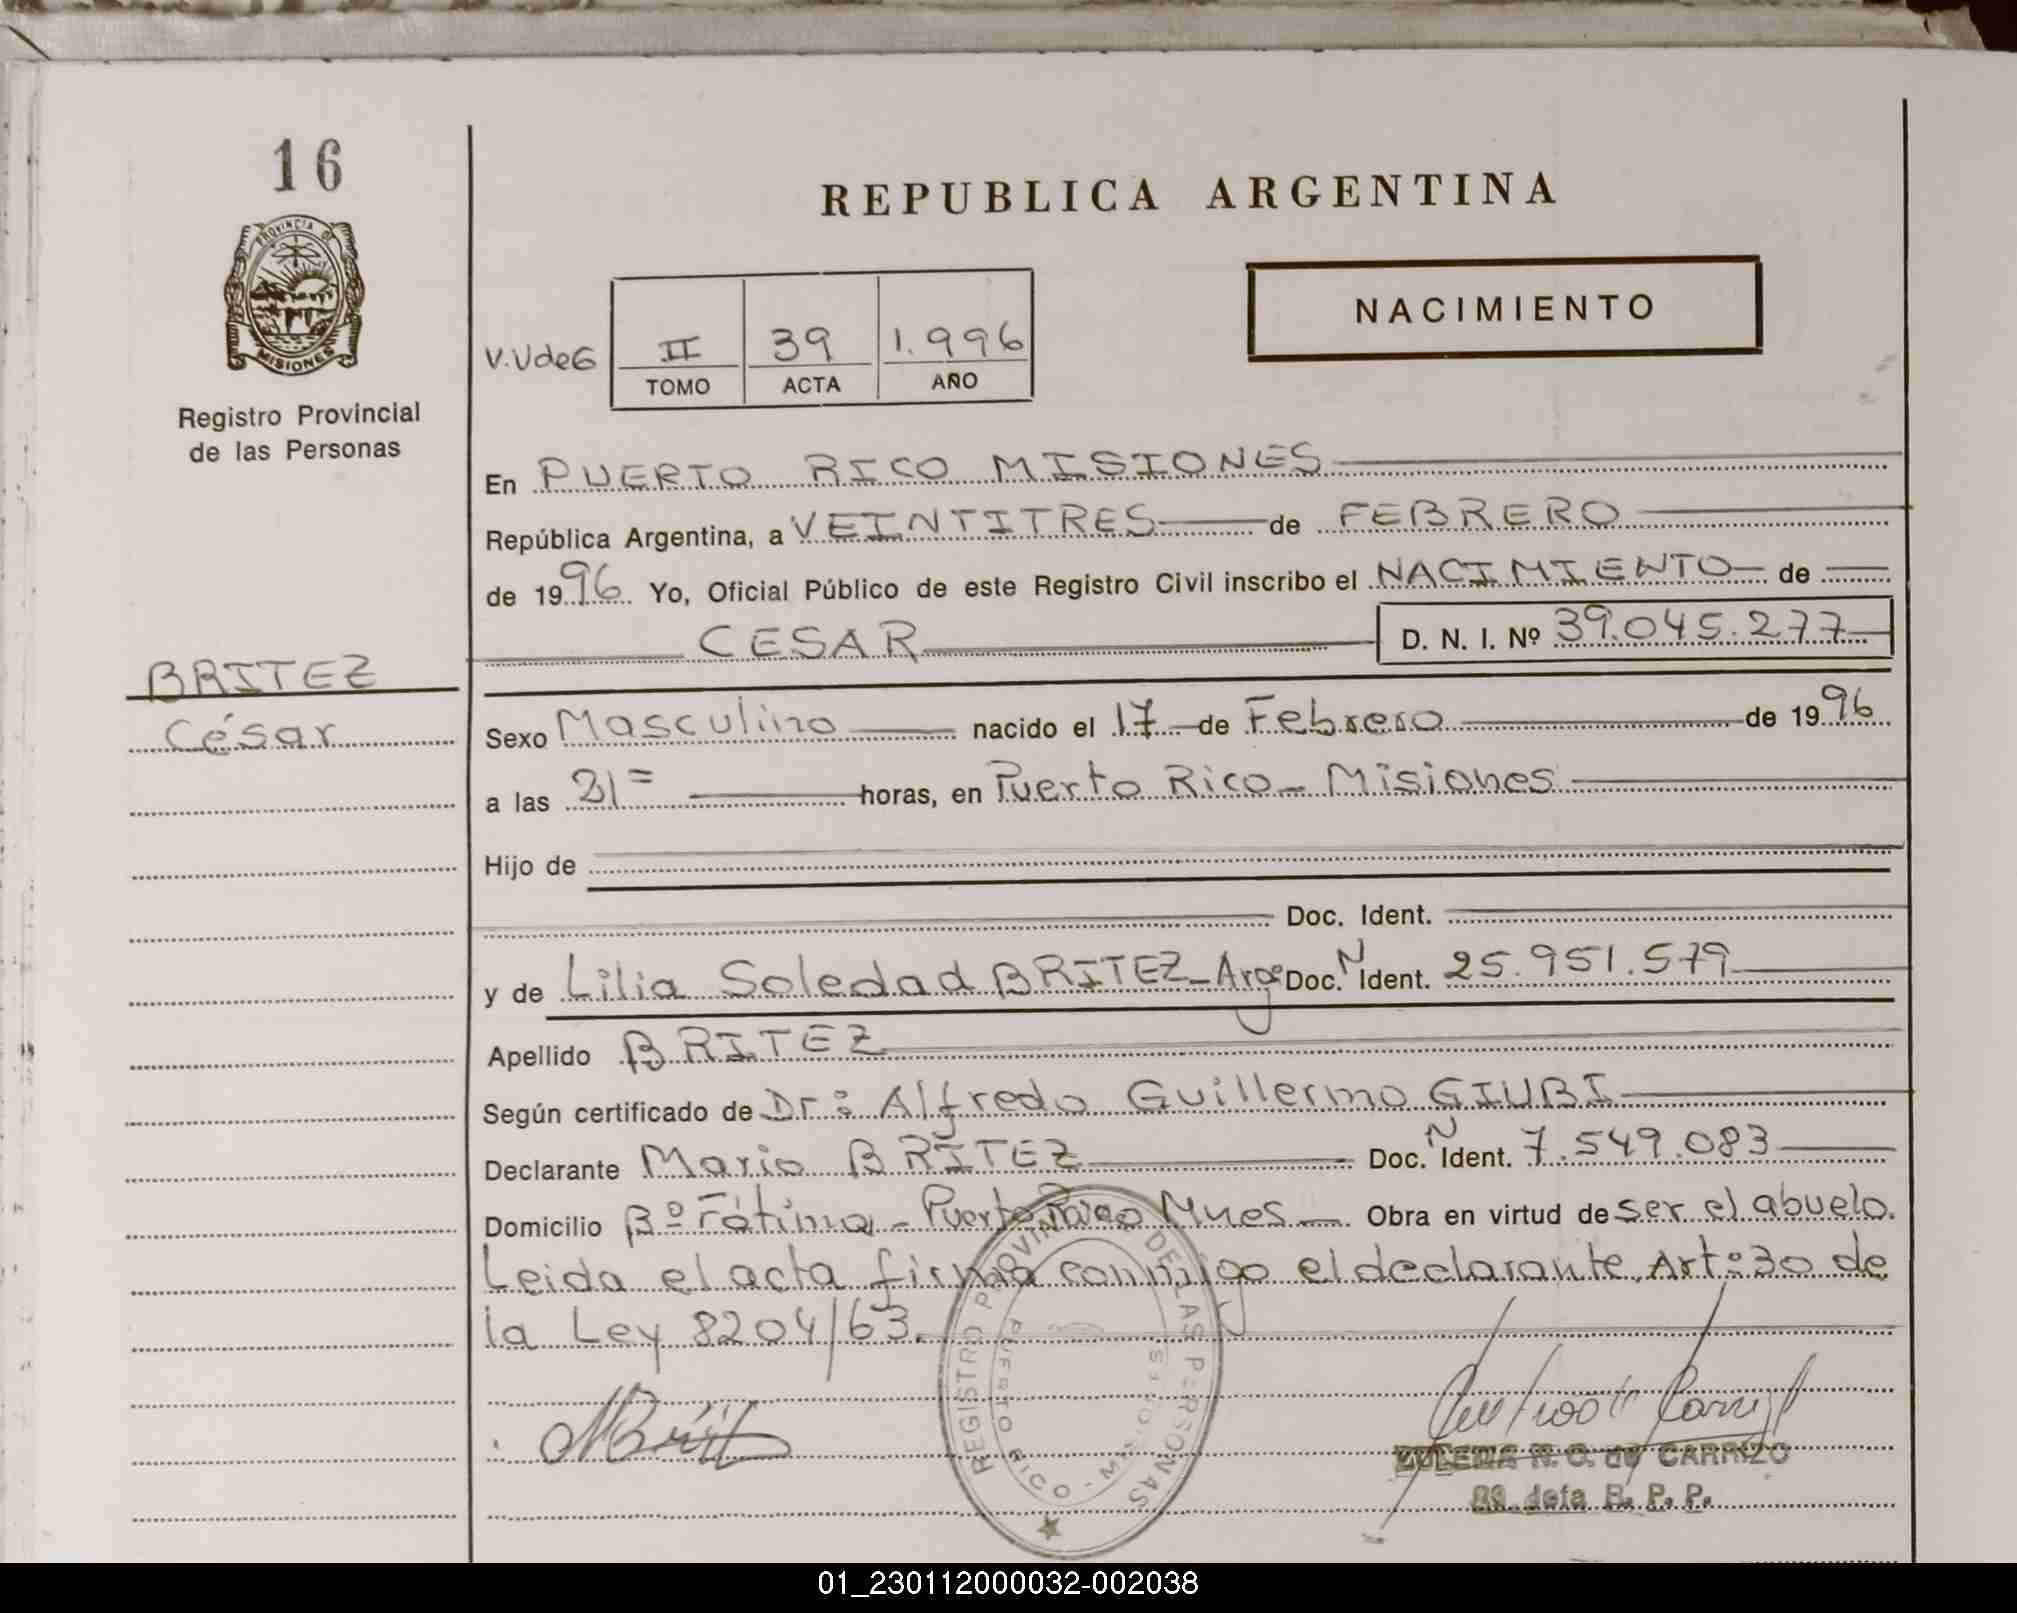 16
PROVINCIA DE
MISIONES
Registro Provincial
de las Personas
REPUBLICA ARGENTINA
NACIMIENTO
V.UdeG
II 39 1.996
TOMO ACTA AÑO
En PUERTO RICO MISIONES
República Argentina, a VEINTITRES de FEBRERO
de 1996 Yo, Oficial Público de este Registro Civil inscribo el NACIMIENTO de
CESAR D. N. I. Nº 39.045.277
BRITEZ
César
Sexo Masculino nacido el 17 de Febrero de 1996
a las 21= horas, en Puerto Rico - Misiones
Hijo de
Doc. Ident.
y de Lilia Soledad BRITEZ - Arg. Doc. N Ident. 25.951.579
Apellido BRITEZ
Según certificado de Dr: Alfredo Guillermo GIUBI
Declarante Mario BRITEZ Doc. N Ident. 7.549.083
Domicilio Bº Fátima - Puerto Rico Mnes Obra en virtud de ser el abuelo.
Leida el acta firma conmigo el declarante, Art: 30 de
la Ley 8204/63.
REGISTRO PROVINCIAL DE LAS PERSONAS
PUERTO RICO - MISIONES
ZULEMA N. O. de CARRIZO
R. P. P.
01_230112000032-002038